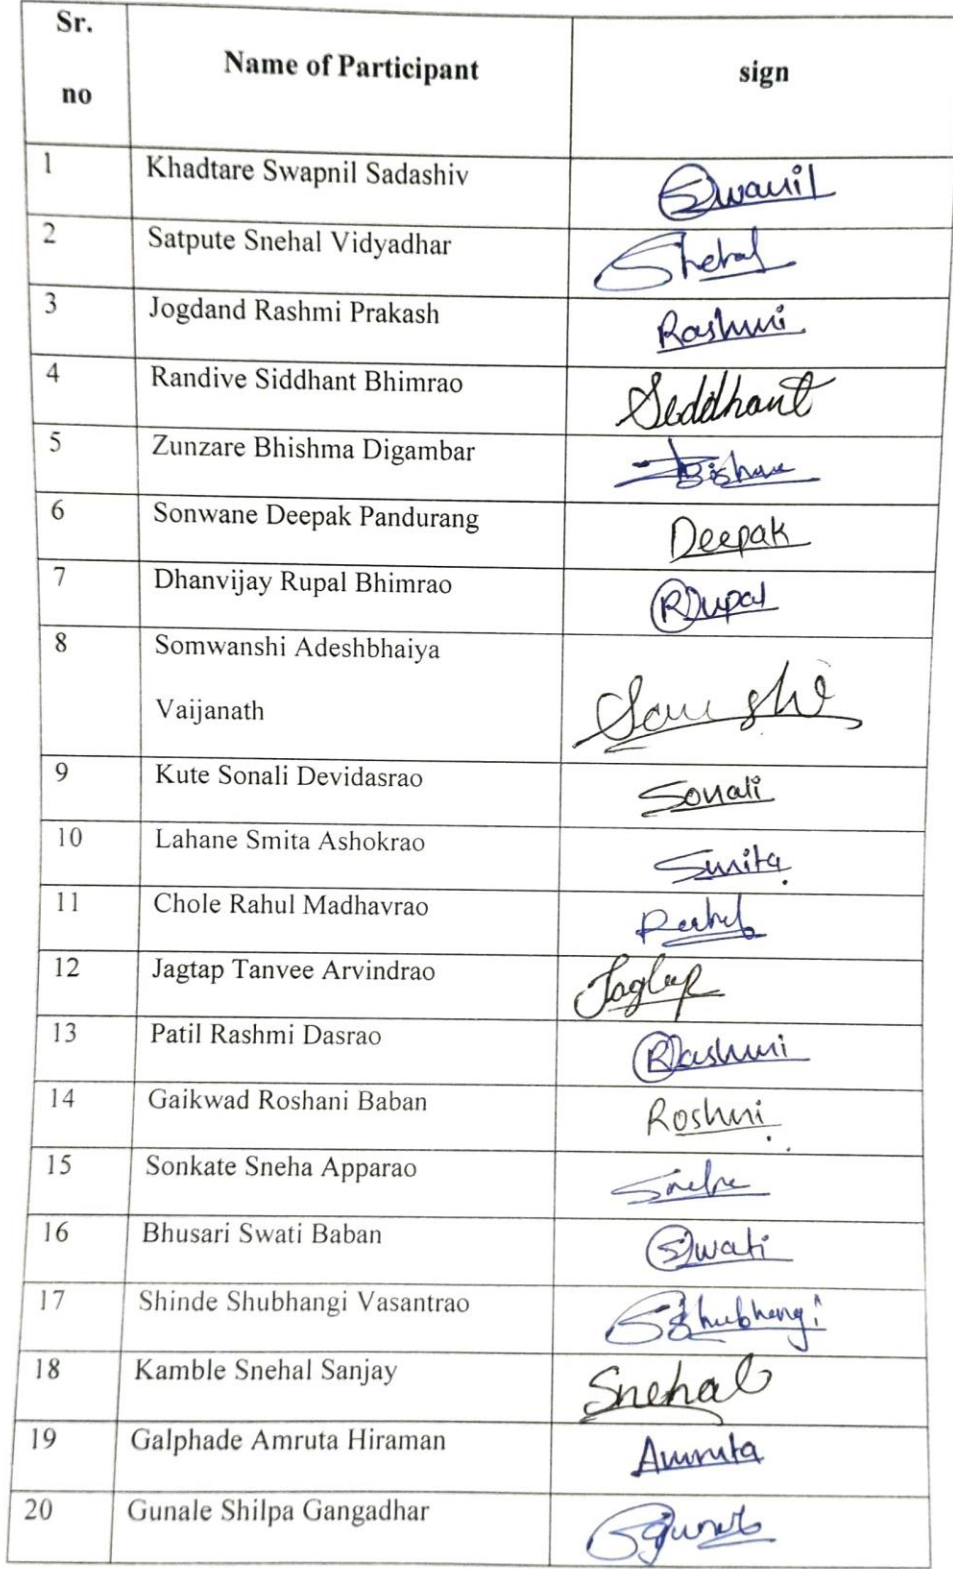 Sr. no Name of Participant sign
1 Khadtare Swapnil Sadashiv Swanil
2 Satpute Snehal Vidyadhar Snehal
3 Jogdand Rashmi Prakash Rashmi
4 Randive Siddhant Bhimrao Siddhant
5 Zunzare Bhishma Digambar
6 Sonwane Deepak Pandurang Deepak
7 Dhanvijay Rupal Bhimrao Rupal
8 Somwanshi Adeshbhaiya
Vaijanath
9 Kute Sonali Devidasrao Sonali
10 Lahane Smita Ashokrao Smita
11 Chole Rahul Madhavrao Rahul
12 Jagtap Tanvee Arvindrao Jagtap
13 Patil Rashmi Dasrao Rashmi
14 Gaikwad Roshani Baban Roshni
15 Sonkate Sneha Apparao Sneha
16 Bhusari Swati Baban Swati
17 Shinde Shubhangi Vasantrao Shubhangi
18 Kamble Snehal Sanjay Snehal
19 Galphade Amruta Hiraman Amruta
20 Gunale Shilpa Gangadhar